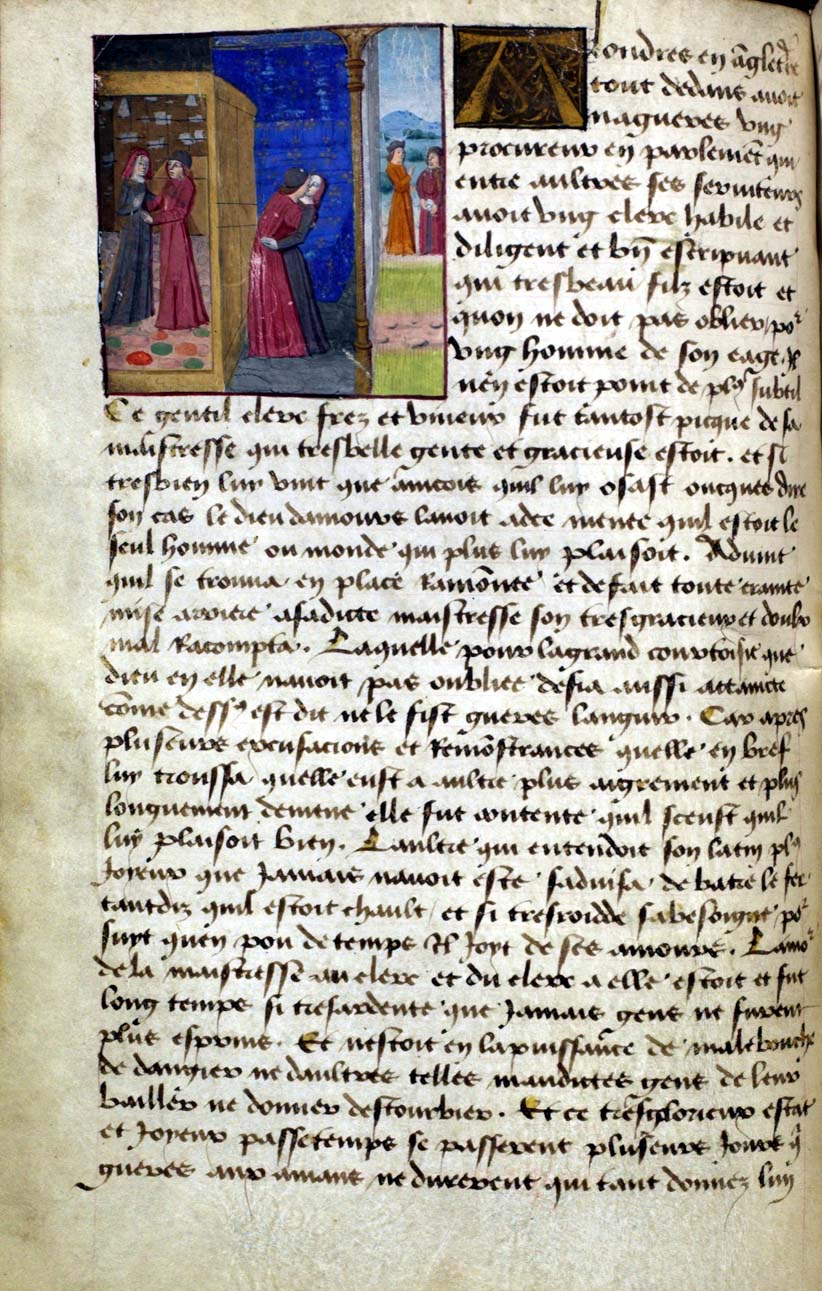 A londres en angleterre
tout dedans auoit
nagueres vng
procureur en parlement qui
entre aultres ses seruiteurs
auoit vng clerc habile et
diligent et bñ escripuant
qui tresbeau filz estoit et
quon ne doit pas oblier por
vng homme de son eage Il
nen estoit point de plus subtil
Ce gentil clerc frez et viueur fut tantost picque de sa
maistresse qui tresbelle gente et gracieuse estoit . et si
tresbien luy vint que aincois quil luy osast oncques dire
son cas le dieu damours lauoit ad ce menee quil estoit le
seul homme ou monde qui plus luy plaisoit . Aduint
quil se trouua en place Ramonee et de fait toute crainte
mise arriere a sa dicte maistresse son tresgracieux et doulx
mal Racompta . Laquelle pour la grand courtoisie que
dieu en elle nauoit pas oubliee desia aussi attaincte
come dessus est dit ne le fist gueres languir . Car apres
pluseurs excusacions et Remonstrances quelle en bref
luy troussa quelle eust a aultre plus aigrement et plus
longuement demene elle fut contente quil sceust quil
luy plaisoit bien . Laultre qui entendoit son latin plus
Joyeux que Jamais nauoit este saduisa de batre le fer
tantdiz quil estoit chault / et si tresroidde sa besoigne por
suyt quen pou de temps Il Joyt de ses amours . Lamor
de la maistresse au clerc et du clerc a elle estoit et fut
long temps si tresardente que Jamais gens ne furent
plus esprins . Et nestoit en la puissance de malebouche
de dangier ne daultres telles mauldictes gens de leur
bailler ne donner destourbier . Et ce tresglorieux estat
et Joyeux passetemps se passerent pluseurs Jours qui
gueres aux amans ne durerent qui tant donnez luy